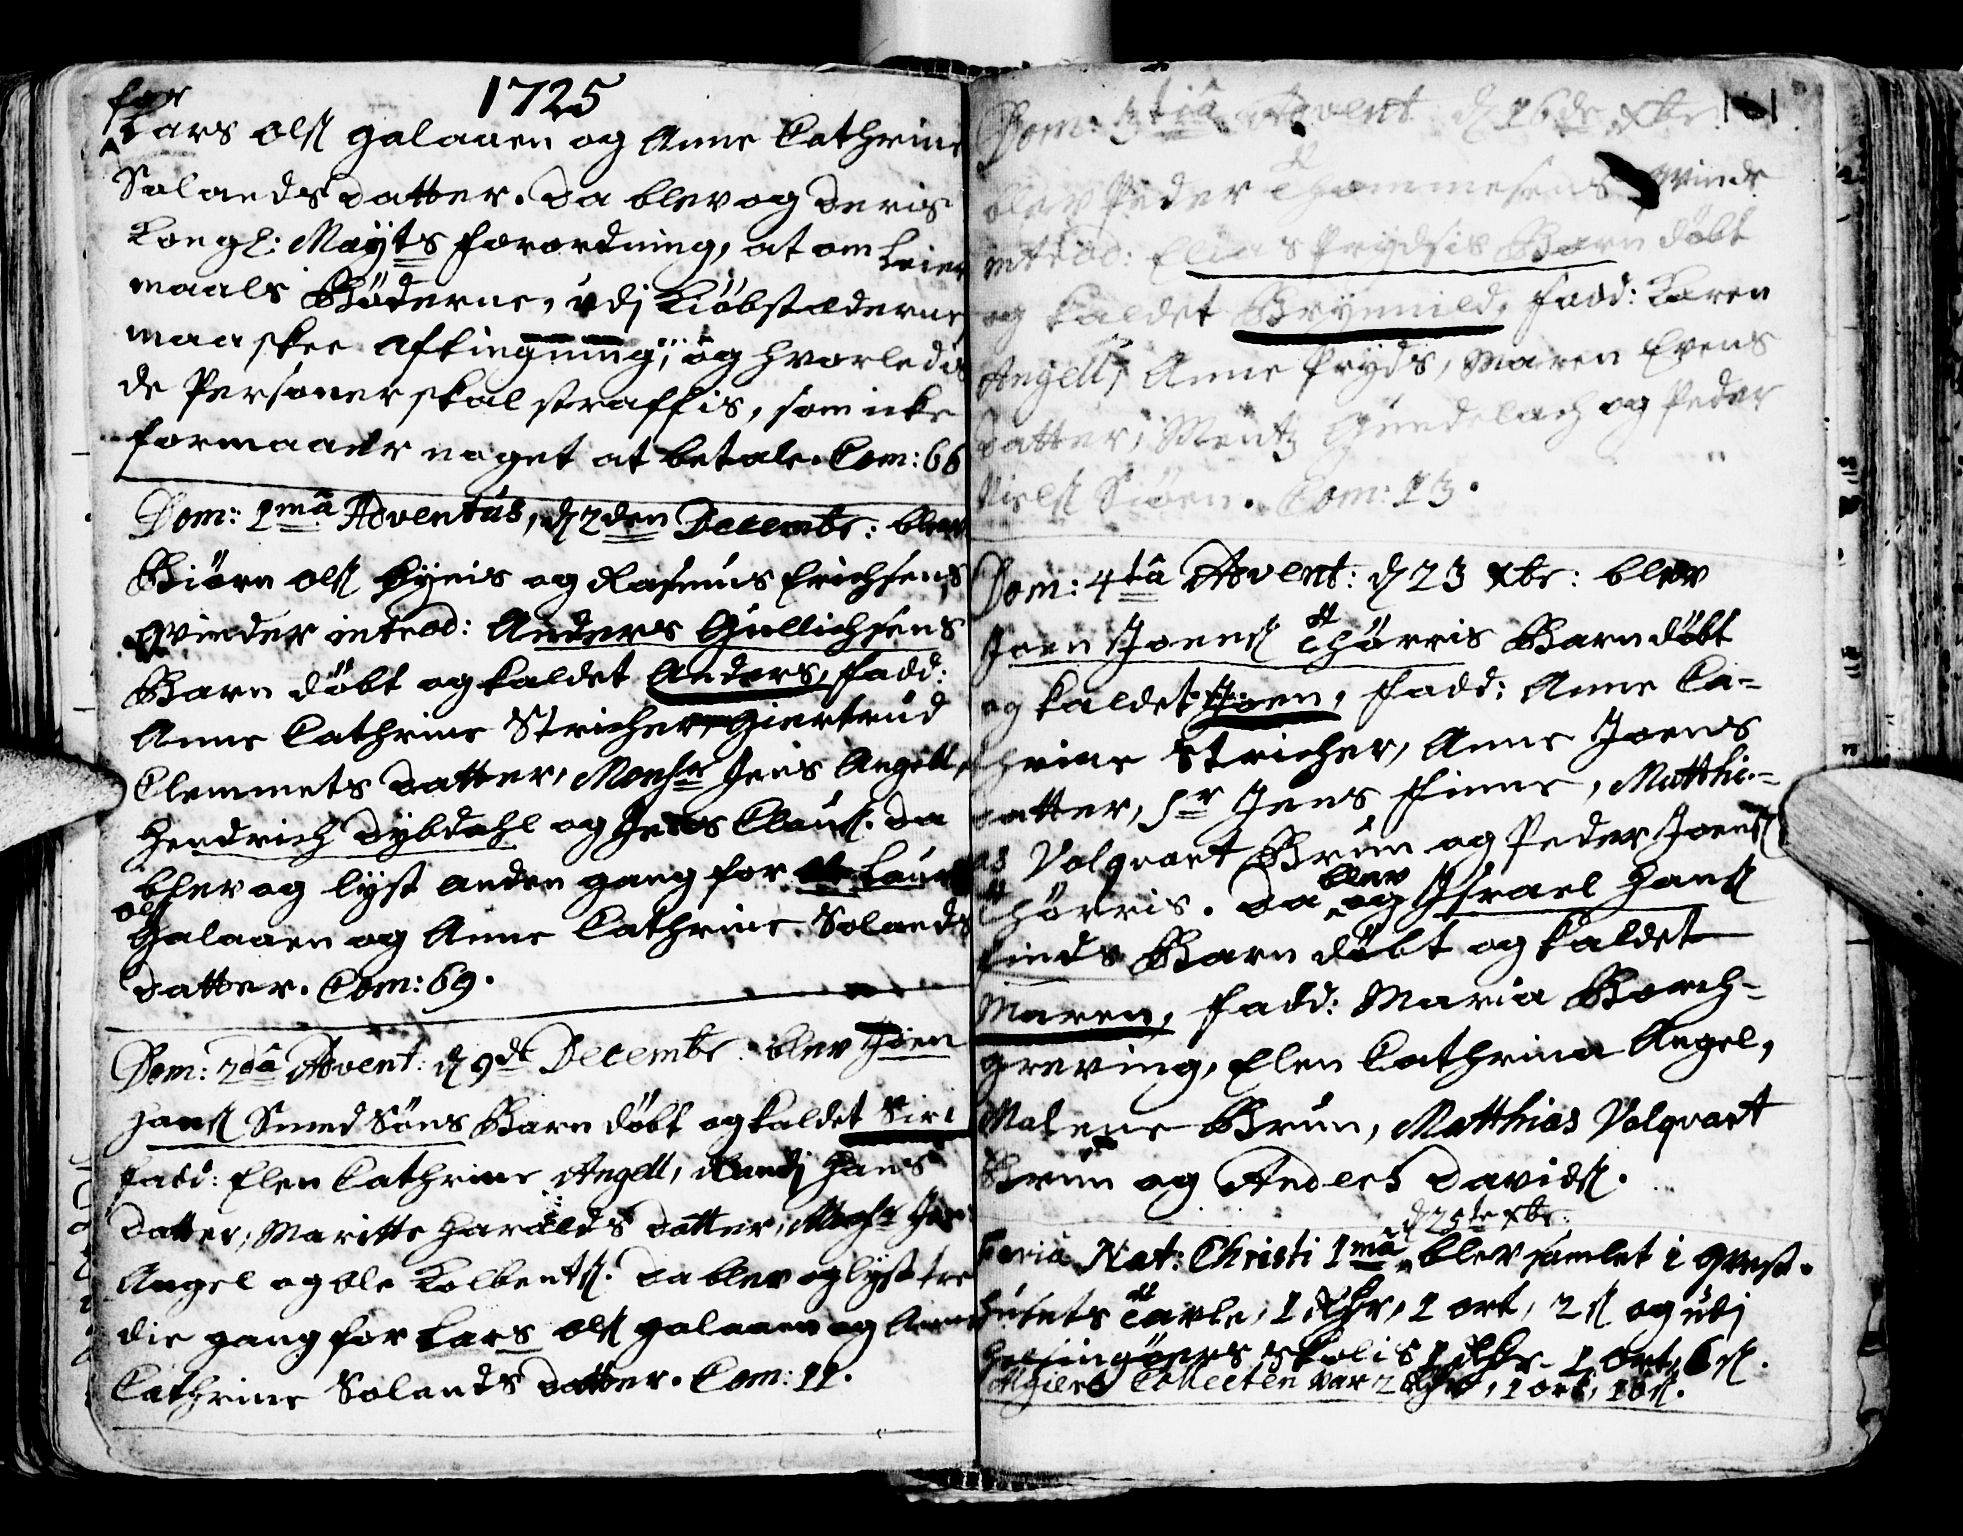 1725
for
Lars Olsſ galaaen og Anne Cathrine
Solandsdatter. Da blev og deris
Kongl: Mayts forordning, at om Leier
maals Bøderne, udj Kiøbstæderne
maa skee affingning, og hvorledis
de Personer skal straffis, som icke
formaaer noget at betale. Com: 66
Dom: 1mâ Adventus, d 2den Decembr: blev
Biørn Olsſ byens og Rasmus Erichsens
qvinder introd: Anders Gullichsens
Barn døbt og kaldet Anders, fadd:
Anne Cathrine Stricher, Giertrud
Clemmets datter, Monsr Jens Angell,
Hendrich Dybdahl og Jens Clausſ. Da
blev og lyst anden gang for Laurs
Olsſ
Galaaen og Anne Cathrine Solands
datter. Com: 69.
Dom: 2dâ Advent: d 9de Decembr. blev Joen
Hansſ Smed Søns Barn døbt og kaldet Siri
fadd: Elen Cathrine Angell, Randj Hans
datter, Maritte Haralds datter, Monsr Jens
Angel og Ole Kolbentsſ. Da blev og lyst tre
die gang for Lars Olsſ galaaen og Anne
Cathrine Solands datter. Com: 11.
Dom: 3tiâ Advent d 16de xbr
blev Peder Thommesens qvinde
introd: Elias Prydsis Barn døbt
og kaldet Brynnild, fadd: Karen
Angell, Anne Pryds, Maren Evens
datter, Mentz Gundelach og Peder
Nielsſ Siøen. Com: 13.
Dom: 4tâ Advent: d 23 xbr: blev
Joen Joensſ Thørris Barn døbt
og kaldet Joen, fadd: Anne Ca-
thrine Stricher, Anne Joens
datter, Sr Jens Finne, Matthi-
as Volqvart Brun og Peder Joensſ
Thørris. Da blev og Israel Hansſ
finds Barn døbt og kaldet
Maren, fadd: Maria Borch-
greving, Elen Cathrina Angel,
Malene Brun, Matthias Volqvart
Brun og Anders Davidsſ.
d 25te xbr.
Feriâ Nat: Christi 1mâ blev samlet i Qvest-
husets tavle, 1 Rdr, 1 ort, 2 sſ og udj
Helsingøers skolis 1 Rdr 1 ort, 6 sſ.
Collecten var 2 Rdr, 1 ort, 10 sſ.